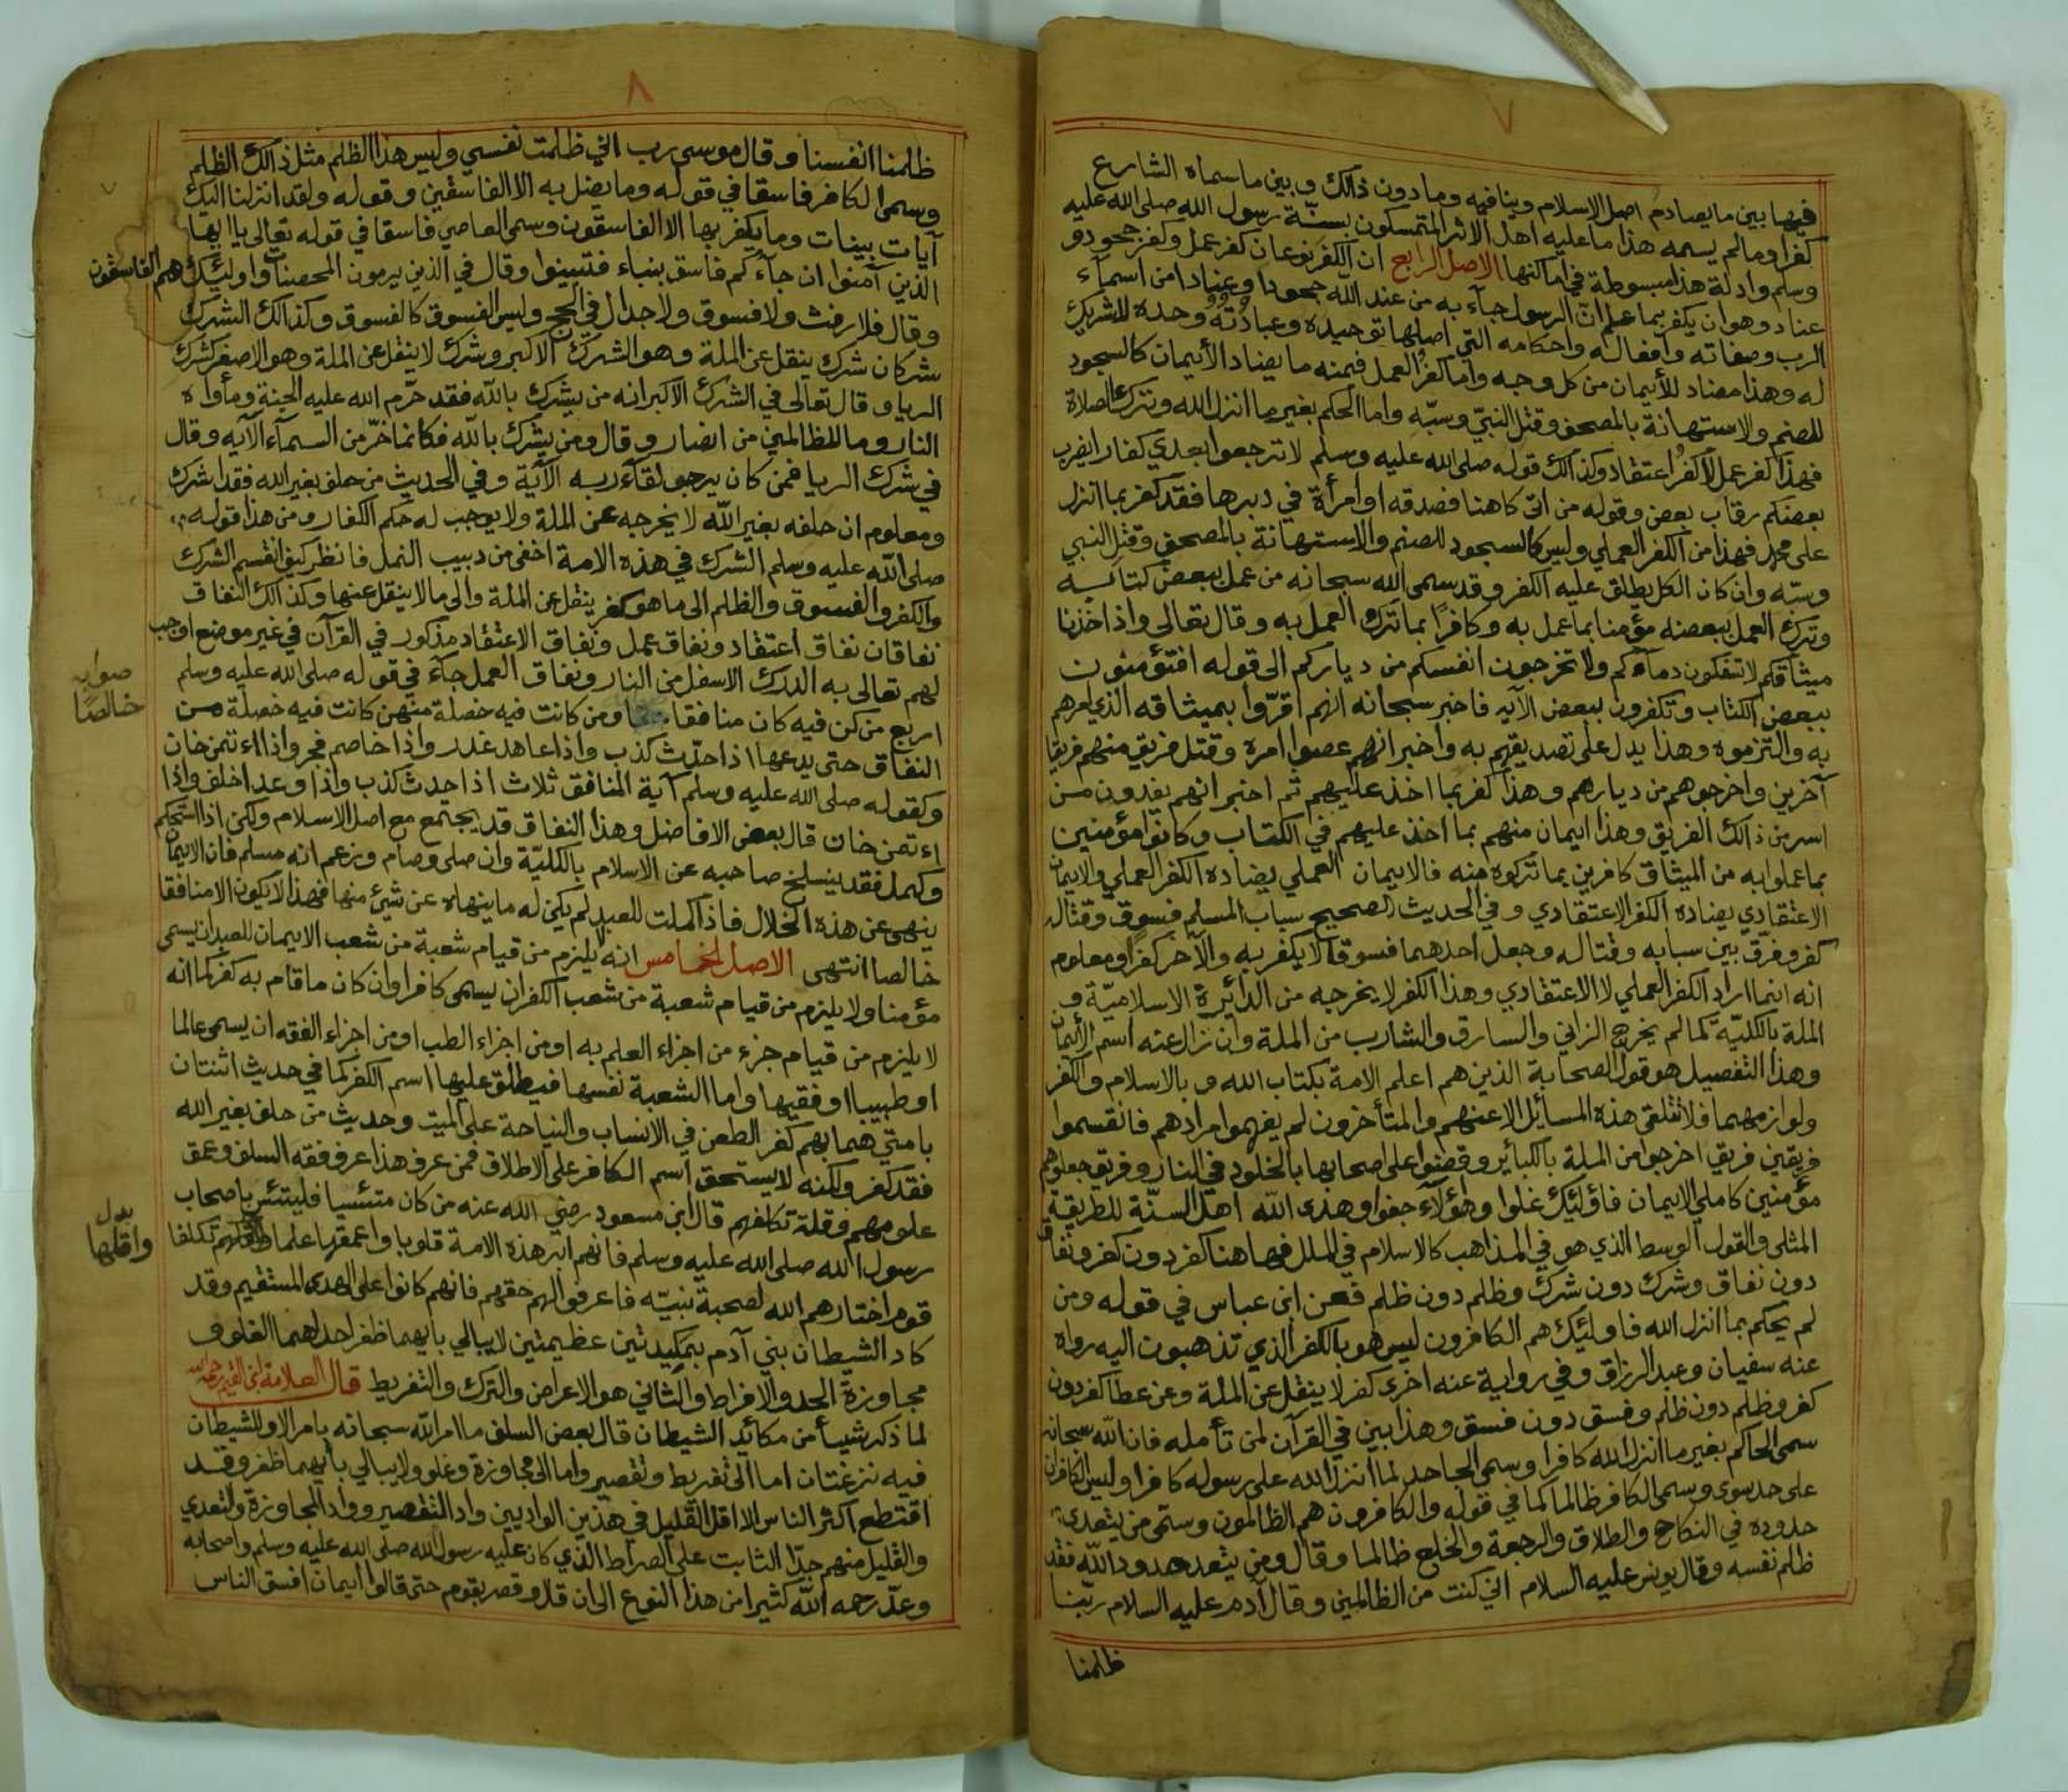 ٧
فيها بين ما يصادم اصل الاسلام وينافيه وما دون ذالك و بين ما سماه الشارع
كفرا وما لم يسمه هذا ما عليه اهل الاثر المتمسكون بسنّة رسول الله صلى الله عليه
وسلم وادلة هذا مبسوطة في اماكنها الاصل الرابع ان الكفر نوعان كفر عمل وكفر جحود و
عناد وهو ان يكفر بما علم انّ الرسول جآء به من عند الله جحودا وعنادا من اسمآء
الرب وصفاته وافعاله واحكامه التي اصلها توحيده وعبادته وحده لا شريك
له وهذا مضاد للأيمان من كل وجه واما كفر العمل فمنه ما يضاد الأيمان كالسجود
للصنم والاستهانة بالمصحف وقتل النبيّ وسبّه واما الحكم بغير ما انزل الله وترك الصلاة
فهذا كفر عمل لا كفر اعتقاد وكذالك قوله صلى الله عليه وسلم لا ترجعوا بعدي كفارا يضرب
بعضكم رقاب بعض وقوله من اتى كاهنا فصدقه او امرأة في دبرها فقد كفر بما انزل
على محمد فهذا من الكفر العملي وليس كالسجود للصنم والاستهانة بالمصحف وقتل النبي
وسبّه وان كان الكل يطلق عليه الكفر وقد سمى الله سبحانه من عمل ببعض كتابه
وترك العمل ببعضه مؤمنا بما عمل به وكافرًا بما ترك العمل به وقال تعالى واذ اخذنا
ميثاقكم لا تسفكون دمآءكم ولا تخرجون انفسكم من دياركم الى قوله افتؤمنون
ببعض الكتاب وتكفرون ببعض الآيه فاخبر سبحانه انهم اقرّوا بميثاقه الذي امرهم
به والتزموه وهذا يدل على تصديقهم به واخبر انهم عصوا امره وقتل فريق منهم فريقا
آخرين واخرجوهم من ديارهم وهذا كفر بما اخذ عليهم ثم اخبر انهم يفدون من
اسر من ذالك الفريق وهذا ايمان منهم بما اخذ عليهم في الكتاب وكانوا مؤمنين
بما عملوا به من الميثاق كافرين بما تركوه منه فالايمان العملي يضاده الكفر العملي والايمان
الاعتقادي يضاده الكفر الاعتقادي و في الحديث الصحيح سباب المسلم فسوق وقتاله
كفر وفرّق بين سبابه وقتاله وجعل احدهما فسوقا لا يكفر به والآخر كفرًا ومعلوم
انه انما اراد الكفر العملي لا الاعتقادي وهذا الكفر لا يخرجه من الدائرة الاسلاميّة و
الملة بالكليّة كما لم يخرج الزاني والسارق والشارب من الملة وان زال عنه اسم الأيمان
وهذا التفصيل هو قول الصحابة الذين هم اعلم الامة بكتاب الله و بالاسلام والكفر
ولوازمهما فلا تتلقى هذه المسائل الا عنهم والمتأخرون لم يفهموا مرادهم فانقسموا
فريقين فريقا اخرجوا من الملة بالكبائر وقضوا على اصحابها بالخلود في النار وفريق جعلوهم
مؤمنين كاملي الايمان فاولئيك غلوا وهؤلآء جفوا وهدى الله اهل السنّة للطريقة
المثلى والقول الوسط الذي هو في المذاهب كالاسلام في الملل فهاهنا كفر دون كفر ونفاق
دون نفاق وشرك دون شرك وظلم دون ظلم فعن ابن عباس في قوله ومن
لم يحكم بما انزل الله فاولئيك هم الكافرون ليس هو بالكفر الذي تذهبون اليه رواه
عنه سفيان وعبد الرزاق وفي رواية عنه اخرى كفر لا ينقل عن الملة وعن عطا كفر دون
كفر وظلم دون ظلم وفسق دون فسق وهذا بين في القرآن لمن تأمله فان الله سبحانه
سمى الحاكم بغير ما انزل الله كافرا وسمى الجاحد لما انزل الله على رسوله كافرا وليس الكافران
على حد سوى وسمى الكافر ظالما كما في قوله والكافرون هم الظالمون وسمى من يتعدى
حدوده في النكاح والطلاق والرجعة والخلع ظالما وقال ومن يتعد حدود الله فقد
ظلم نفسه وقال يونس عليه السلام اني كنت من الظالمين وقال آدم عليه السلام ربّنا
ظلمنا
٨
ظلمنا انفسنا وقال موسى رب اني ظلمت نفسي وليس هذا الظلم مثل ذالك الظلم
وسمى الكافر فاسقا في قوله وما يضل به الا الفاسقين وقوله ولقد انزلنا اليك
آيات بينات وما يكفر بها الا الفاسقون وسمى العاصي فاسقا في قوله تعالى يا ايها
الذين آمنوا ان جآءكم فاسق بنباء فتبينوا وقال في الذين يرمون المحصنات واولئيك هم الفاسقون
وقال فلا رفث ولا فسوق ولا جدال في الحج وليس الفسوق كالفسوق وكذالك الشرك
شركان شرك ينقل عن الملة وهو الشرك الاكبر وشرك لا ينقل عن الملة وهو الاصغر كشرك
الريا وقال تعالى في الشرك الاكبر انه من يشرك بالله فقد حرّم الله عليه الجنة ومأواه
النار وما للظالمين من انصار وقال ومن يشرك بالله فكانما خرّ من السمآء الآيه وقال
في شرك الريا فمن كان يرجو لقآء ربه الآية وفي الحديث من حلف بغير الله فقد اشرك
ومعلوم ان حلفه بغير الله لا يخرجه عن الملة ولا يوجب له حكم الكفار ومن هذا قوله
صلى الله عليه وسلم الشرك في هذه الامة اخفى من دبيب النمل فانظر كيف انقسم الشرك
والكفر والفسوق والظلم الى ما هو كفر ينقل عن الملة والى ما لا ينقل عنها وكذالك النفاق
نفاقان نفاق اعتقاد ونفاق عمل ونفاق الاعتقاد مذكور في القرآن في غير موضع اوجب
لهم تعالى به الدرك الاسفل من النار ونفاق العمل جآء في قوله صلى الله عليه وسلم
صوابه
خالصًا
اربع من كن فيه كان منافقا ومن كانت فيه خصلة منهن كانت فيه خصلة من
النفاق حتى يدعها اذا حدّث كذب واذا عاهد غدر واذا خاصم فجر واذا اءتمن خان
وكقوله صلى الله عليه وسلم آية المنافق ثلاث اذا حدث كذب واذا وعد اخلف واذا
اءتمن خان قال بعض الافاضل وهذا النفاق قد يجتمع مع اصل الاسلام ولكن اذا استحكم
وكمل فقد ينسلخ صاحبه عن الاسلام بالكليّة وان صلى وصام وزعم انه مسلم فان الايمان
ينهى عن هذه الخلال فاذا كملت للعبد لم يكن له ما ينهاه عن شيئ منها فهذا لا يكون الا منافقا
خالصا انتهى الاصل الخامس انه لا يلزم من قيام شعبة من شعب الايمان للعبد ان يسمى
مؤمنا ولا يلزم من قيام شعبة من شعب الكفر ان يسمى كافرا وان كان ما قام به كفر كما انه
لا يلزم من قيام جزء من اجزاء العلم به او من اجزاء الطب او من اجزاء الفقه ان يسمى عالما
او طبيبا او فقيها واما الشعبة نفسها فيطلق عليها اسم الكفر كما في حديث اثنتان
بامتي هما بهم كفر الطعن في الانساب والنياحة على الميت وحديث من حلف بغير الله
فقد كفر ولكنه لا يستحق اسم الكافر على الاطلاق فمن عرف هذا عرف فقه السلف وعمق
علومهم وقلة تكلفهم قال ابن مسعود رضي الله عنه من كان متئسيا فليتئس باصحاب
رسول الله صلى الله عليه وسلم فانهم ابر هذه الامة قلوبا واعمقها علما تكلفا
بدل
واقلّها
قوم اختارهم الله لصحبة نبيّه فاعرفوا لهم حقهم فانهم كانوا على الهدى المستقيم وقد
كاد الشيطان بني آدم بمكيدتين عظيمتين لا يبالي بايهما ظفر احداهما الغلو و
مجاوزة الحد والافراط والثاني هو الاعراض والترك والتفريط قال العلامة ابن القيم رحمه الله
لما ذكر شيأ من مكائد الشيطان قال بعض السلف ما امر الله سبحانه بامر الا وللشيطان
فيه نزغتان اما الى تفريط وتقصير واما الى مجاوزة وغلو ولا يبالي بأيهما ظفر وقد
اقتطع اكثر الناس الا اقل القليل في هذين الواديين واد التقصير وواد المجاوزة والتعدي
والقليل منهم جدّا الثابت على الصراط الذي كان عليه رسول الله صلى الله عليه وسلم واصحابه
وعدّ رحمه الله كثيرا من هذا النوع الى ان قال وقصر بقوم حتى قالوا ايمان افسق الناس